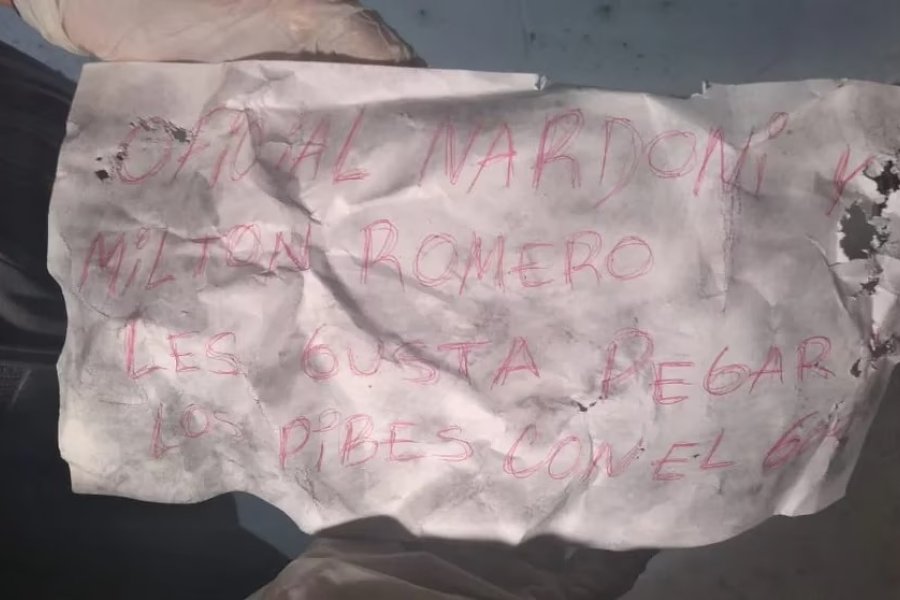 OFICIAL NARDONi Y
MiLTON ROMERO
LES GUSTA PEGAR
LOS PiBES CON EL